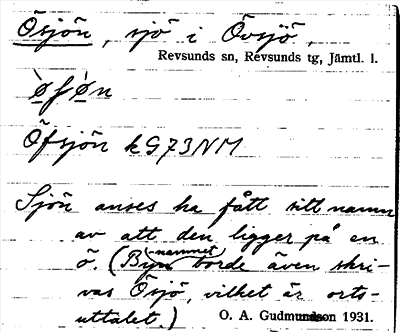 Ösjön, sjö i Övsjö,
Revsunds sn, Revsunds tg, Jämtl. l.
Öfsjön kG73NM
Sjön anses ha fått sitt namn
av att den ligger på en
ö. (Bynamnet borde även skri-
vas Ösjö, vilket är orts-
uttalet.)
O. A. Gudmundson 1931.